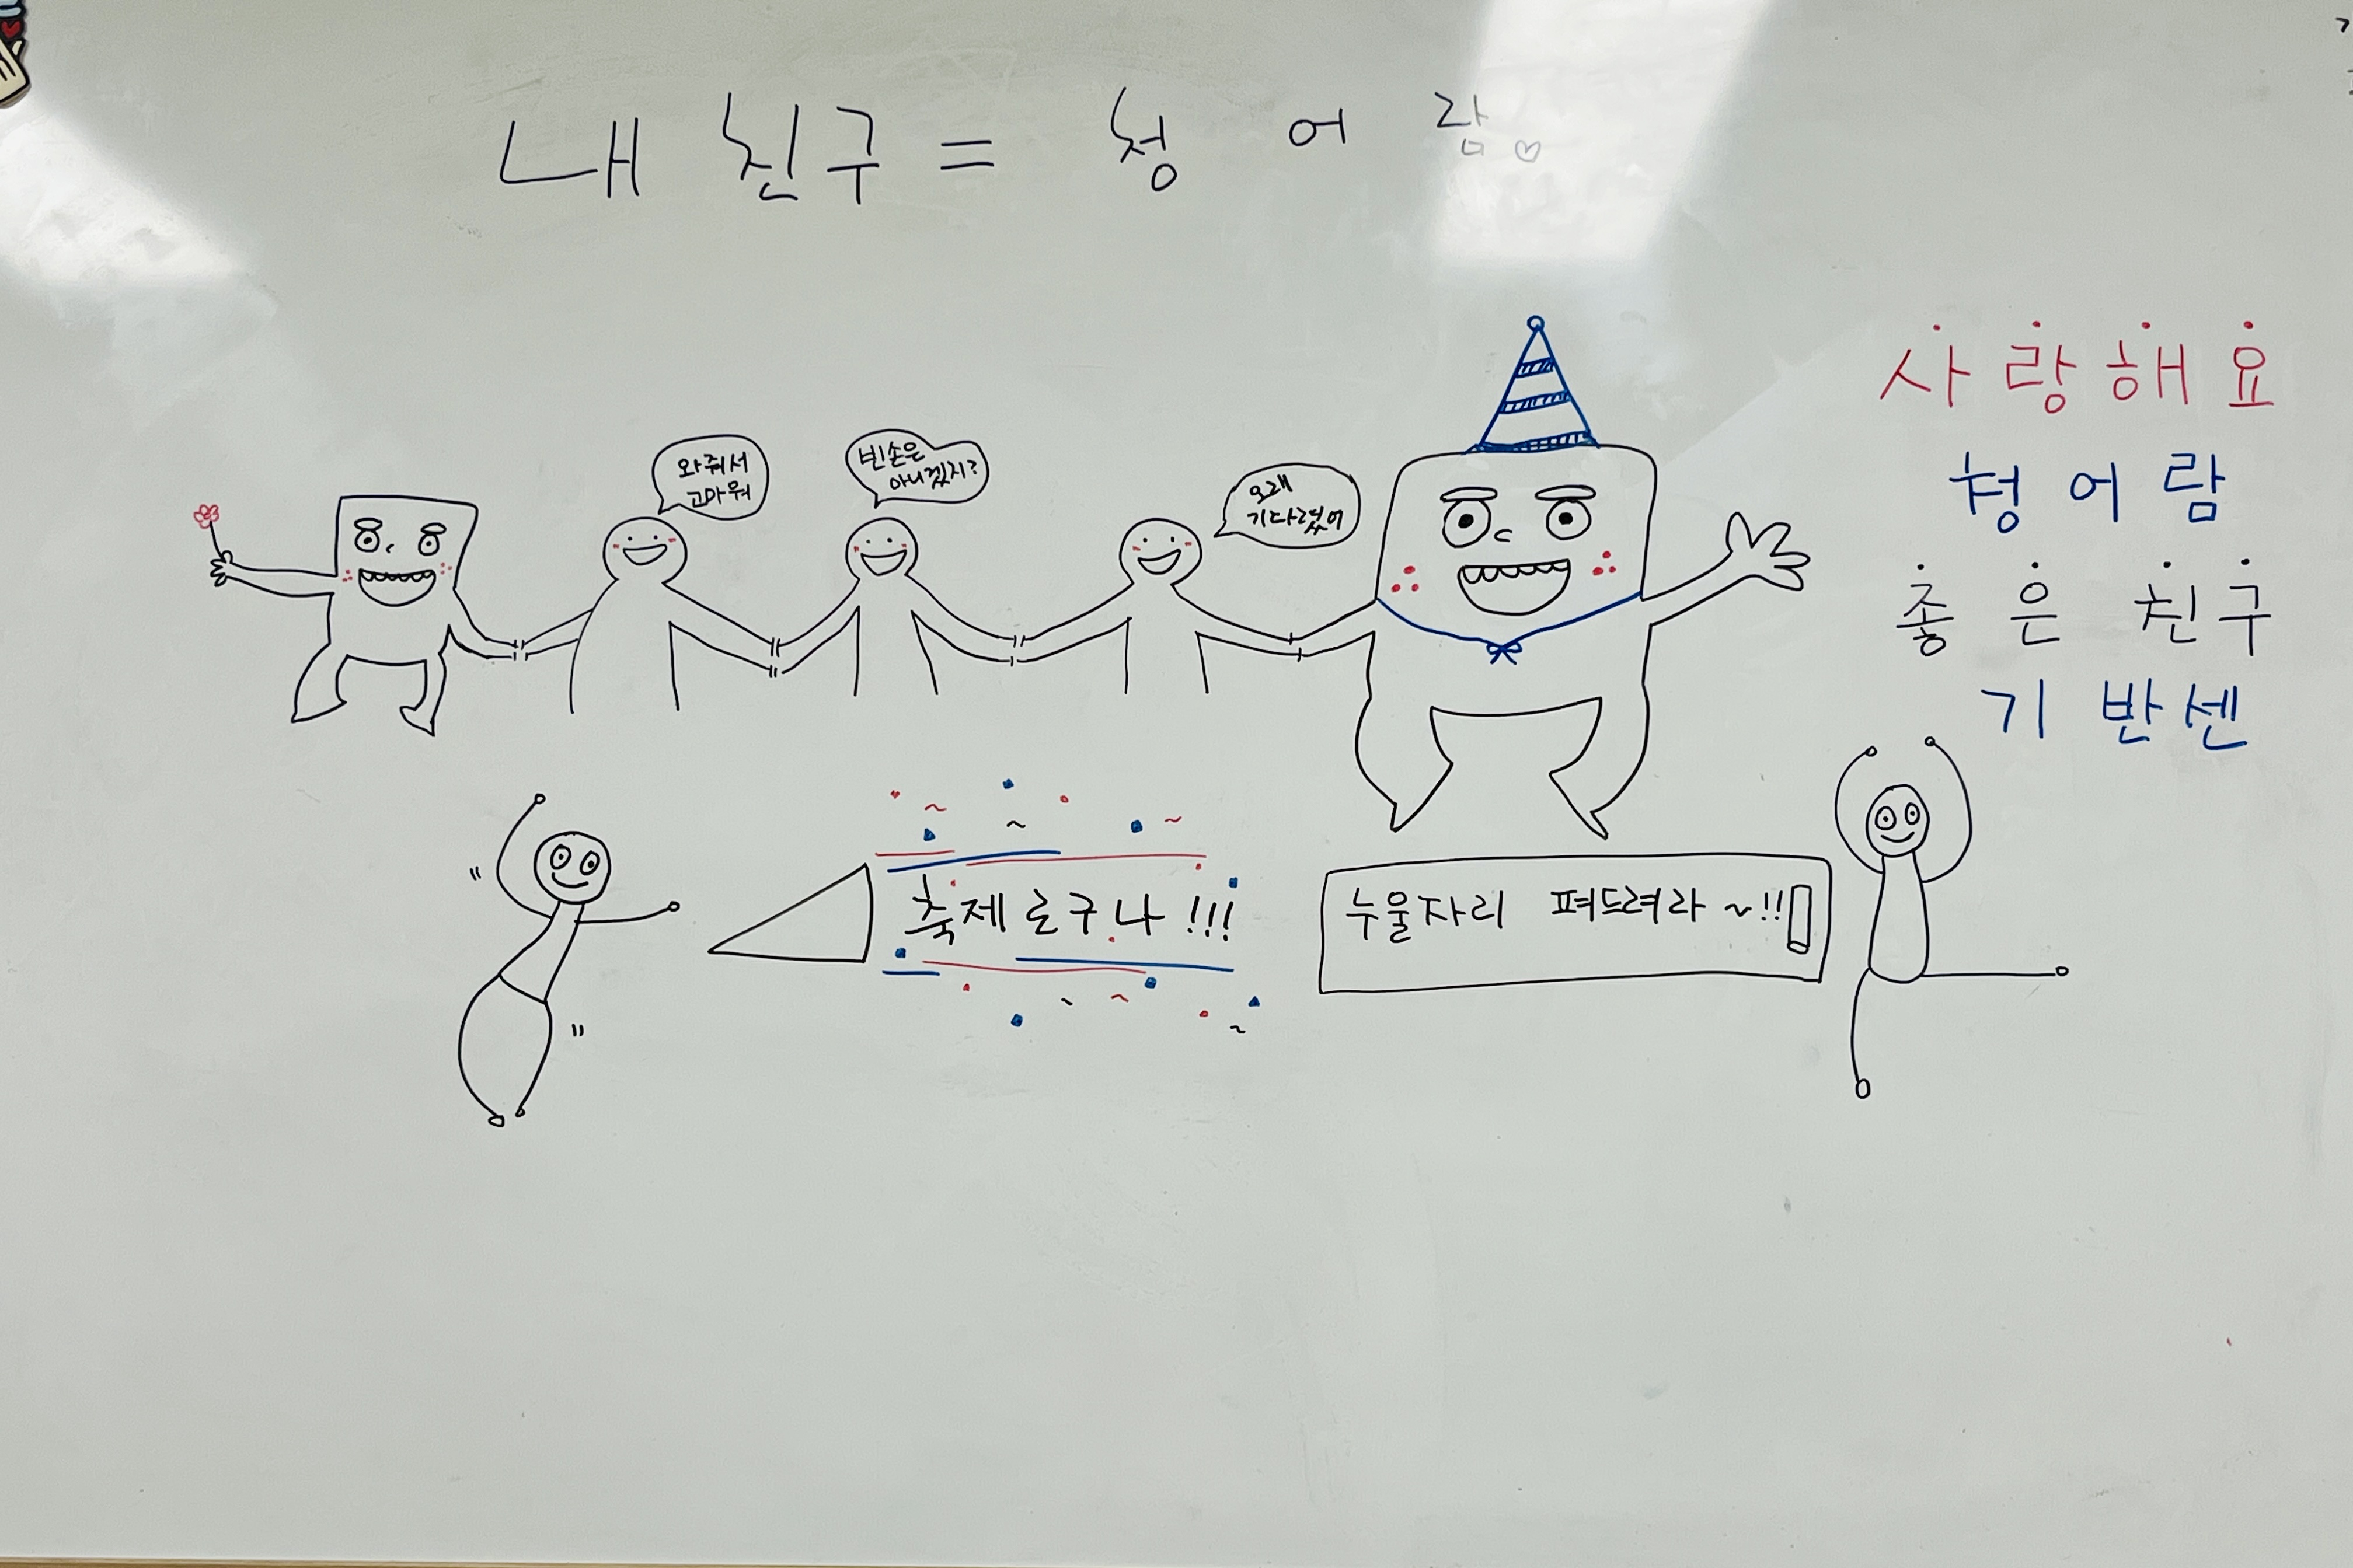 내 친구 = 청 어 람♡
사랑해요
청어람
좋은 친구
기반센
와줘서
고마워
빈손은
아니겠지?
오래
기다렸어
축제로구나!!!
누울자리 펴드려라~!!